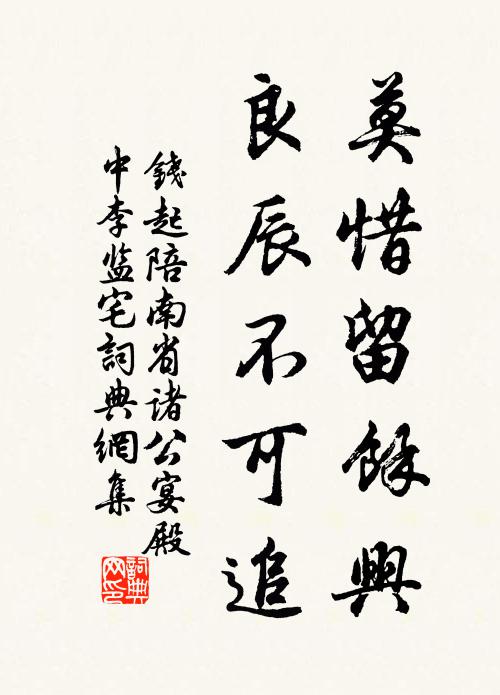 莫惜留餘興
良辰不可追
錢起陪南省诸公宴殿
中李监宅詞典網集
詞典
网印